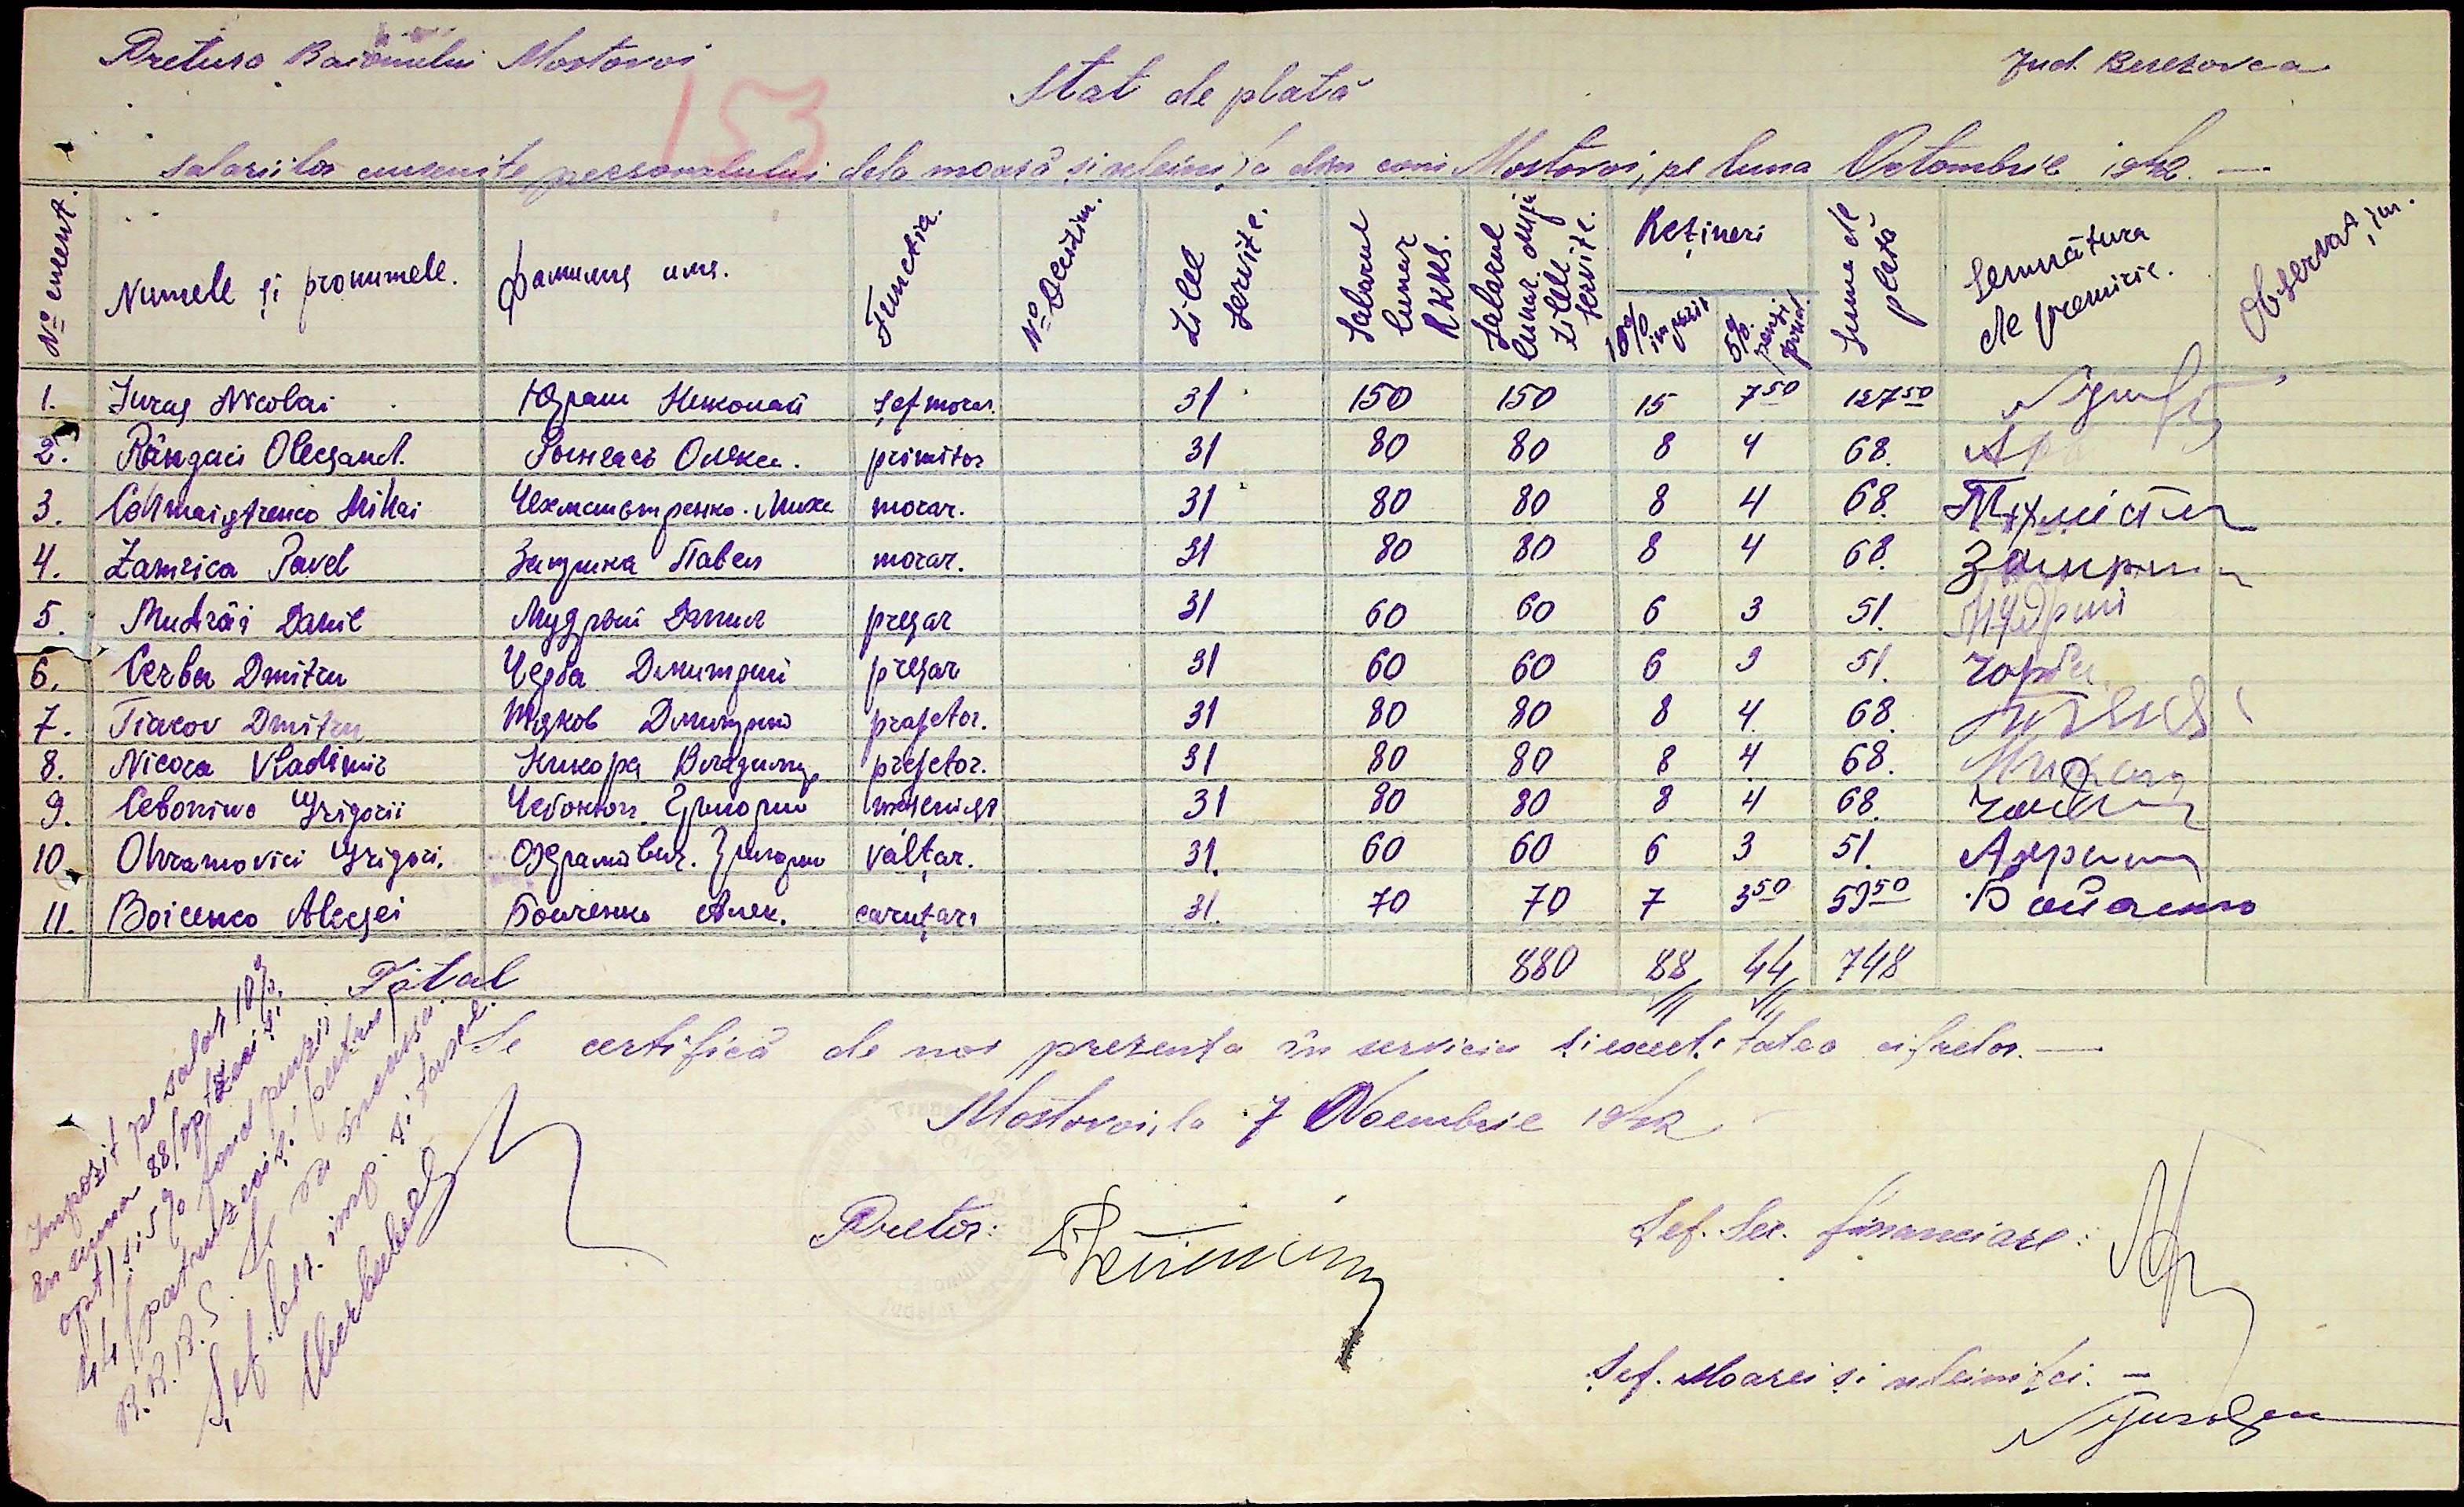 Pretura Raionului Mostovoi
Jud. Berezovca
153
Stat de plată
salariilor cuvenite personalului dela moară și uleinița din com. Mostovoi, pe luna Octombrie 1942. —
No curent.
Numele și pronumele.
Фамилия имя.
Functia.
No
Zilele servite.
Salarul lunar RKKS.
Salarul lunar după zilele servite.
Rețineri
10% impozit
5% pensii
Suma de plată
Semnătura de primire.
Observat,iun.
1. Iuraș Nicolai Юраш Николай șef morar. 31 150 150 15 7 50 127 50
2. Rângaci Olecsand. Рынгачь Олекса. primitor 31 80 80 8 4 68.
3. Cehmaistrenco Mihai Чехмастренко. Миха morar. 31 80 80 8 4 68.
4. Zamrica Pavel Замрика Павел morar. 31 80 80 8 4 68.
5. Mudrâi Danil Мудрый Данил preșar 31 60 60 6 3 51.
6. Cerba Dmitru Черба Димитрий preșar 31 60 60 6 3 51.
7. Tiacov Dmitru Тяков Димитрий prașetor. 31 80 80 8 4 68
8. Nicora Vladimir Никора Владимир preșetor. 31 80 80 8 4 68.
9. Cebonino Grigorii Григорий 31 80 80 8 4 68.
10 Ohramovici Grigori. Охрамович. Григорий valțar. 31. 60 60 6 3 51.
11. Boicenco Alecsei Бойченко Алек. caruțari 31. 70 70 7 3 50 59 50
Total 880 88 44 748
Se certifică de noi prezența în serviciu și exactitatea cifrelor. —
Mostovoi, la 7 Noembrie 1942
Pretor:
Șef. Ser. financiare:
Șef. Moarei și uleiniței. —
Impozit pe salar 10%
în suma 88/optzeci și
opt/ și 5% fond pensii
44/patruzeci și patru/
R.K.K.S. Se va
Șef. Ser. imp. și taxe.